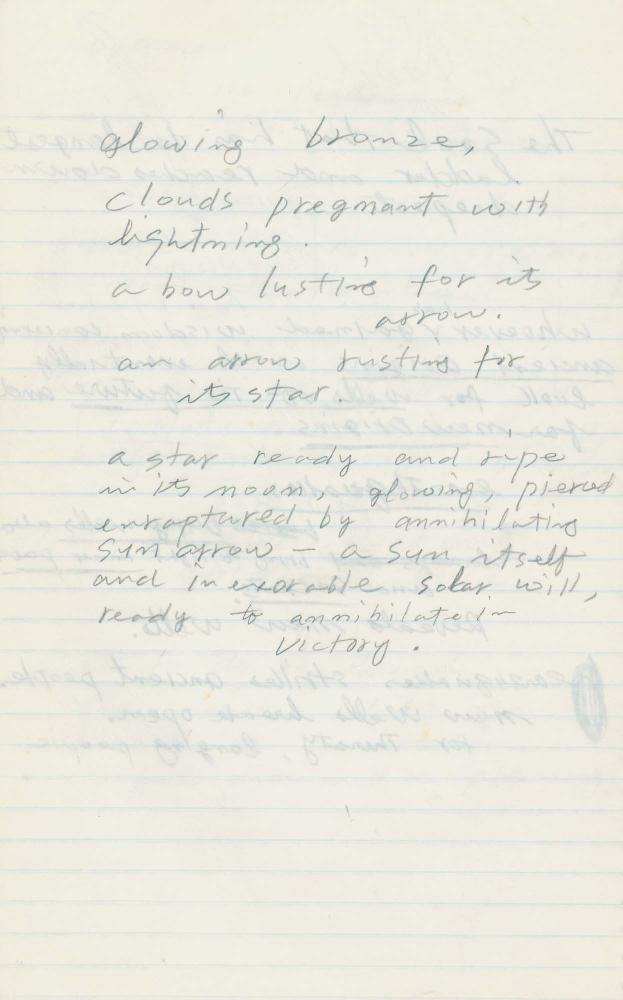 glowing bronze,
clouds pregnant with
lightning.
a bow lusting for its
arrow.
an arrow lusting for
its star.
a star ready and ripe
in its noon, glowing, pierced
enraptured by annihilating
sun arrow — a sun itself
and inexorable solar will,
ready to annihilate in
victory.